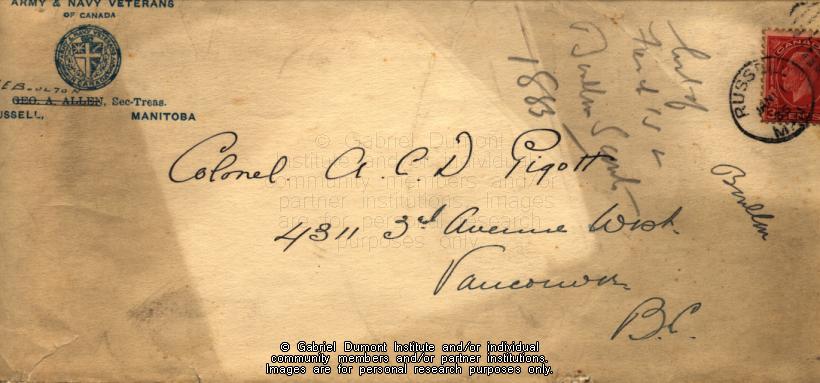 ARMY & NAVY VETERANS
OF CANADA
BOULTON
GEO. A. ALLEN, Sec-Treas.
RUSSELL, MANITOBA
1885
List of
Boulton Scouts
Boulton
CANADA
RUSSELL
MAN
Colonel. A. C. D Pigott
4311 3rd Avenue West.
Vancouver
B.C.
© Gabriel Dumont Institute and/or individual
community members and/or partner institutions.
Images are for personal research purposes only.
© Gabriel Dumont
Institute and/or individual
community members and/or
partner institutions. Images
are for personal research
purposes only.